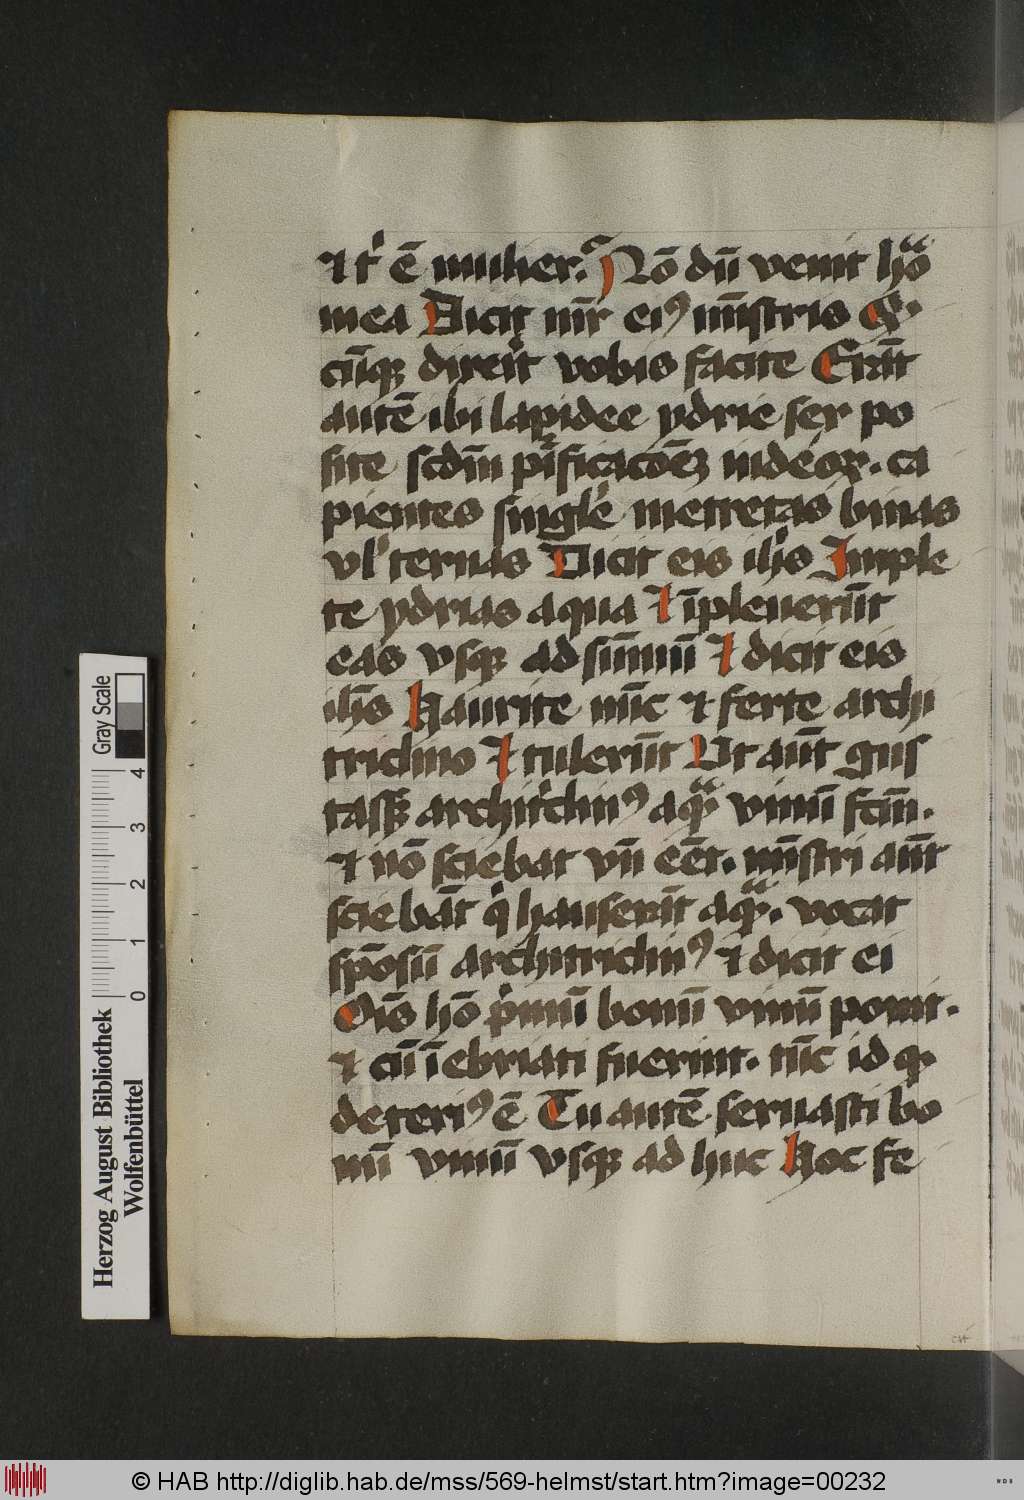 ⁊ t͛ ē mulier.ᷓ Nō dū venit hōᷓ
mea Dicit mr̄ eiꝰ mīstris Q.
cūqꝫ dixeīt vobis facite Erāt
autē ibi lapidee ydrie sex po
site scdm̄ pᷓificacōeꝫ iudeoꝝ. ca
pientes singłe metretas binas
vl͛ ternas Dicit eis ih̄s Imple
te ydrias aqua ⁊ īpleuerūt
eas vsqꝫ ad sūmū ⁊ dicit eis
ih̄s Haurite nūc ⁊ ferte archi
triclino ⁊ tulerūt Ut aūt gus
tass͛ archit͛cliꝰ aqᷓ vinū fctm̄.
⁊ nō sciebat vn̄ eēt. mīstri aūt
sciebāt qͥ hauserāt aqᷓ. vocat
spōsū architricliꝰ ⁊ dicit ei
Oīs hō pͥmū bonū vinū ponit.
⁊ cū īebriati fuerint. tūc id q
deteriꝰ ē Tu autē seruasti bo
nū vinū vsqꝫ ad huc Hoc fe
Gray Scale
4 3 2 1 0
Herzog August Bibliothek
Wolfenbüttel
© HAB http://diglib.hab.de/mss/569-helmst/start.htm?image=00232